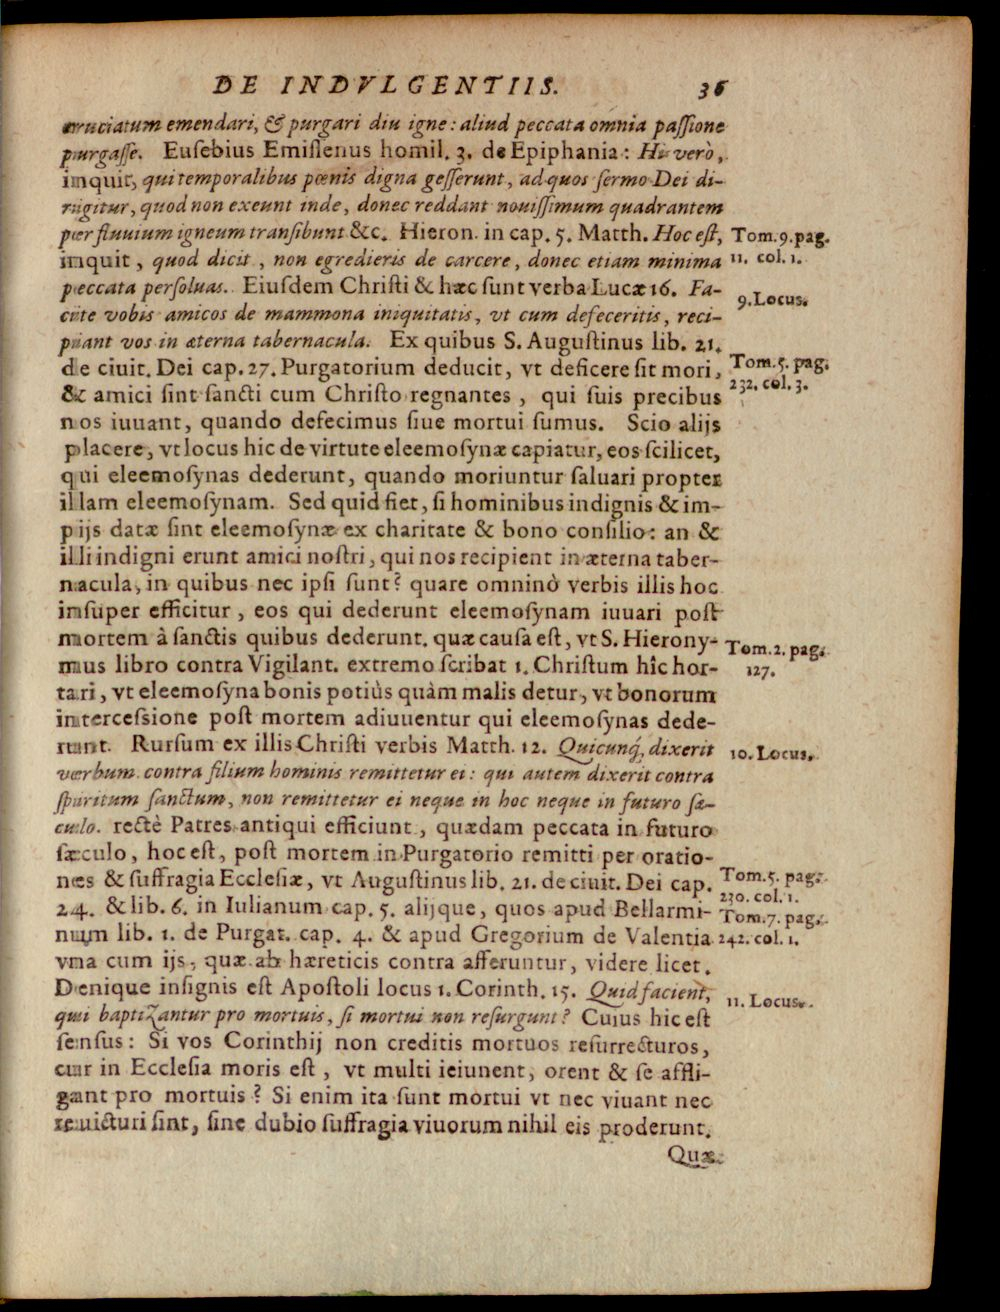 DE INDVLGENTIIS. 36
cruciatum emendari, & purgari diu igne: aliud peccata omnia passione
purgasse. Eusebius Emissenus homil. 3. de Epiphania: Hi verò,
inquit, qui temporalibus pœnis digna gesserunt, ad quos sermo Dei di-
rigitur, quod non exeunt inde, donec reddant nouissimum quadrantem
per fluuium igneum transibunt &c. Hieron. in cap. 5. Matth. Hoc est,
Tom. 9. pag.
inquit, quod dicit, non egredieris de carcere, donec etiam minima
11. col. 1.
peccata persoluas. Eiusdem Christi & hæc sunt verba Lucæ 16. Fa-
9. Locus.
cite vobis amicos de mammona iniquitatis, vt cum defeceritis, reci-
piant vos in æterna tabernacula. Ex quibus S. Augustinus lib. 21.
de ciuit. Dei cap. 27. Purgatorium deducit, vt deficere sit mori,
Tom. 5. pag.
& amici sint sancti cum Christo regnantes, qui suis precibus
232. col. 3.
nos iuuant, quando defecimus siue mortui sumus. Scio alijs
placere, vt locus hic de virtute eleemosynæ capiatur, eos scilicet,
qui eleemosynas dederunt, quando moriuntur saluari propter
illam eleemosynam. Sed quid fiet, si hominibus indignis & im-
pijs datæ sint eleemosynæ ex charitate & bono consilio: an &
illi indigni erunt amici nostri, qui nos recipient in æterna taber-
nacula, in quibus nec ipsi sunt? quare omninò verbis illis hoc
insuper efficitur, eos qui dederunt eleemosynam iuuari post
mortem à sanctis quibus dederunt. quæ causa est, vt S. Hierony-
Tom. 2. pag.
mus libro contra Vigilant. extremo scribat 1. Christum hîc hor-
127.
tari, vt eleemosyna bonis potiùs quàm malis detur, vt bonorum
intercessione post mortem adiuuentur qui eleemosynas dede-
runt. Rursum ex illis Christi verbis Matth. 12. Quicunq́, dixerit
10. Locus.
verbum contra filium hominis remittetur ei: qui autem dixerit contra
spiritum sanctum, non remittetur ei neque in hoc neque in futuro sæ-
culo. rectè Patres antiqui efficiunt, quædam peccata in futuro
sæculo, hoc est, post mortem in Purgatorio remitti per oratio-
nes & suffragia Ecclesiæ, vt Augustinus lib. 21. de ciuit. Dei cap.
Tom. 5. pag.
230. col. 1.
24. & lib. 6. in Iulianum cap. 5. alijque, quos apud Bellarmi-
Tom. 7. pag.
num lib. 1. de Purgat. cap. 4. & apud Gregorium de Valentia
242. col. 1.
vna cum ijs, quæ ab hæreticis contra afferuntur, videre licet.
Denique insignis est Apostoli locus 1. Corinth. 15. Quid facient,
11. Locus.
qui baptizantur pro mortuis, si mortui non resurgunt? Cuius hic est
sensus: Si vos Corinthij non creditis mortuos resurrecturos,
cur in Ecclesia moris est, vt multi ieiunent, orent & se affli-
gant pro mortuis? Si enim ita sunt mortui vt nec viuant nec
reuicturi sint, sine dubio suffragia viuorum nihil eis proderunt.
Quæ